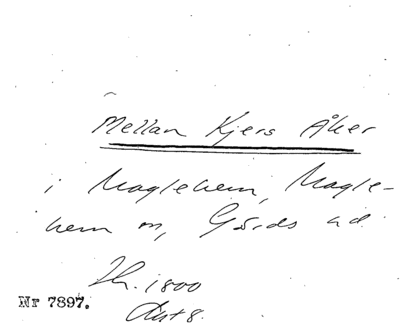 Mellan Kjers Åker
i Maglehem, Magle-
hem sn, Gärds hd.
Sk. 1800
Akt 8.
Nr 7897.